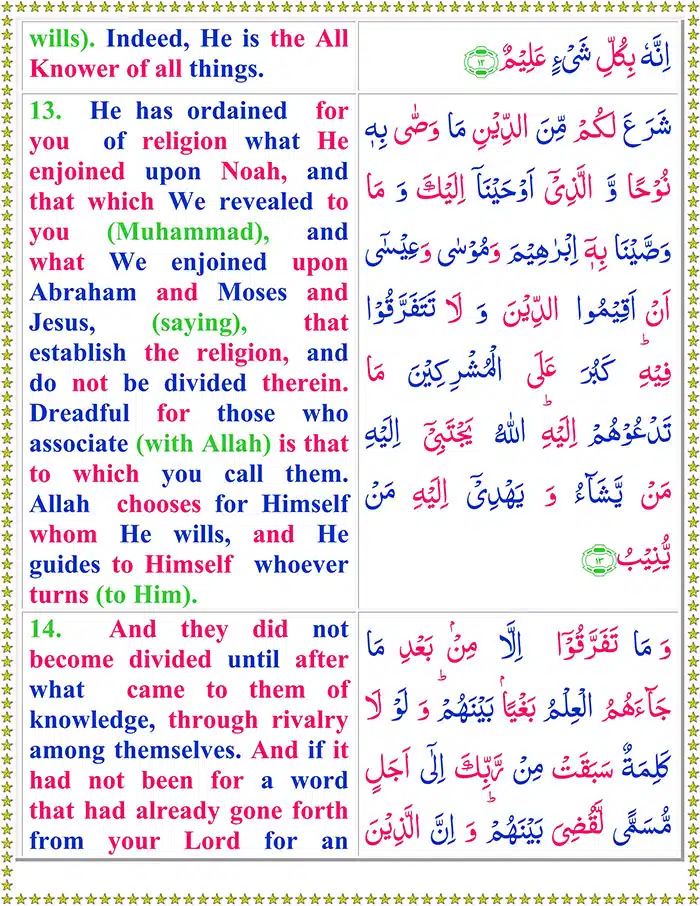 wills). Indeed, He is the All
Knower of all things.
اِنَّهٗ بِكُلِّ شَىۡءٍ عَلِيۡمٌ ﴿۱۲﴾
13. He has ordained for
you of religion what He
enjoined upon Noah, and
that which We revealed to
you (Muhammad), and
what We enjoined upon
Abraham and Moses and
Jesus, (saying), that
establish the religion, and
do not be divided therein.
Dreadful for those who
associate (with Allah) is that
to which you call them.
Allah chooses for Himself
whom He wills, and He
guides to Himself whoever
turns (to Him).
شَرَعَ لَكُمۡ مِّنَ الدِّيۡنِ مَا وَصّٰى بِهٖ
نُوۡحًا وَّ الَّذِىۡۤ اَوۡحَيۡنَاۤ اِلَيۡكَ وَ مَا
وَصَّيۡنَا بِهٖۤ اِبۡرٰهِيۡمَ وَمُوۡسٰى وَعِيۡسٰٓى
اَنۡ اَقِيۡمُوا الدِّيۡنَ وَ لَا تَتَفَرَّقُوۡا
فِيۡهِ‌ؕ كَبُرَ عَلَى الۡمُشۡرِكِيۡنَ مَا
تَدۡعُوۡهُمۡ اِلَيۡهِ‌ؕ اللّٰهُ يَجۡتَبِىۡۤ اِلَيۡهِ
مَنۡ يَّشَآءُ وَ يَهۡدِىۡۤ اِلَيۡهِ مَنۡ
يُّنِيۡبُ ﴿۱۳﴾
14. And they did not
become divided until after
what came to them of
knowledge, through rivalry
among themselves. And if it
had not been for a word
that had already gone forth
from your Lord for an
وَ مَا تَفَرَّقُوۡۤا اِلَّا مِنۡۢ بَعۡدِ مَا
جَآءَهُمُ الۡعِلۡمُ بَغۡيًاۢ بَيۡنَهُمۡ‌ؕ وَ لَوۡ لَا
كَلِمَةٌ سَبَقَتۡ مِنۡ رَّبِّكَ اِلٰٓى اَجَلٍ
مُّسَمًّى لَّقُضِىَ بَيۡنَهُمۡ‌ؕ وَ اِنَّ الَّذِيۡنَ